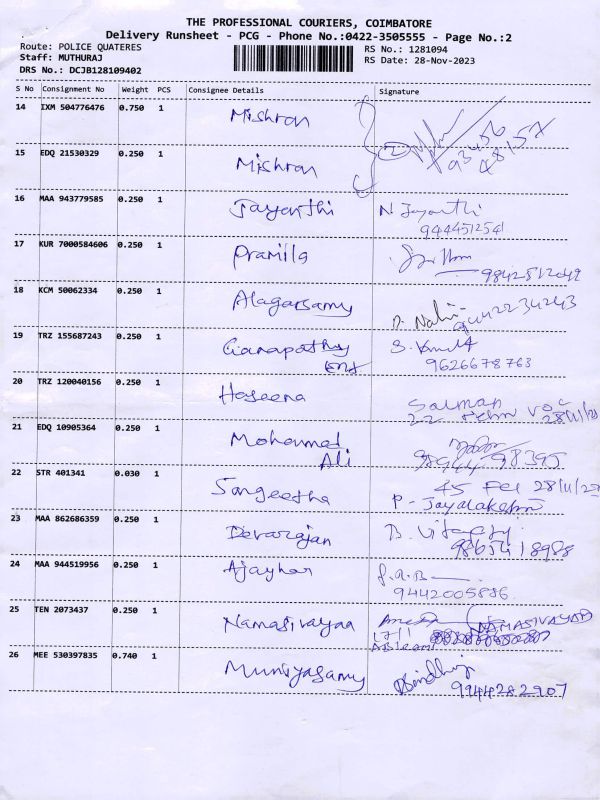 THE PROFESSIONAL COURIERS, COIMBATORE
Delivery Runsheet - PCG - Phone No.:0422-3505555 - Page No.:2
Route: POLICE QUATERES RS No.: 1281094
Staff: MUTHURAJ RS Date: 28-Nov-2023
DRS No.: DCJB128109402
S No Consignment No Weight PCS Consignee Details Signature
14 IXM 504776476 0.750 1 Mishran
15 EDQ 21530329 0.250 1 Mishran
16 MAA 943779585 0.250 1 Jayanthi N. Jayanthi
9444512541
17 KUR 7000584606 0.250 1 Pramilla
9842512049
18 KCM 50062334 0.250 1 Alagarsamy
19 TRZ 155687243 0.250 1 Ganapathy
9626678763
20 TRZ 120040156 0.250 1 Haseena Salman
28/11/23
21 EDQ 10905364 0.250 1 Mohammed
Ali
22 STR 401341 0.030 1 Sangeetha 28/11/23
P. Jayalakshmi
23 MAA 862686359 0.250 1 Devarajan
24 MAA 944519956 0.250 1 Ajayhar
9442005886
25 TEN 2073437 0.250 1 Namasivayaa NAMASIVAYAA
26 MEE 530397835 0.740 1 Muniyasamy Sindhuj
9944282907